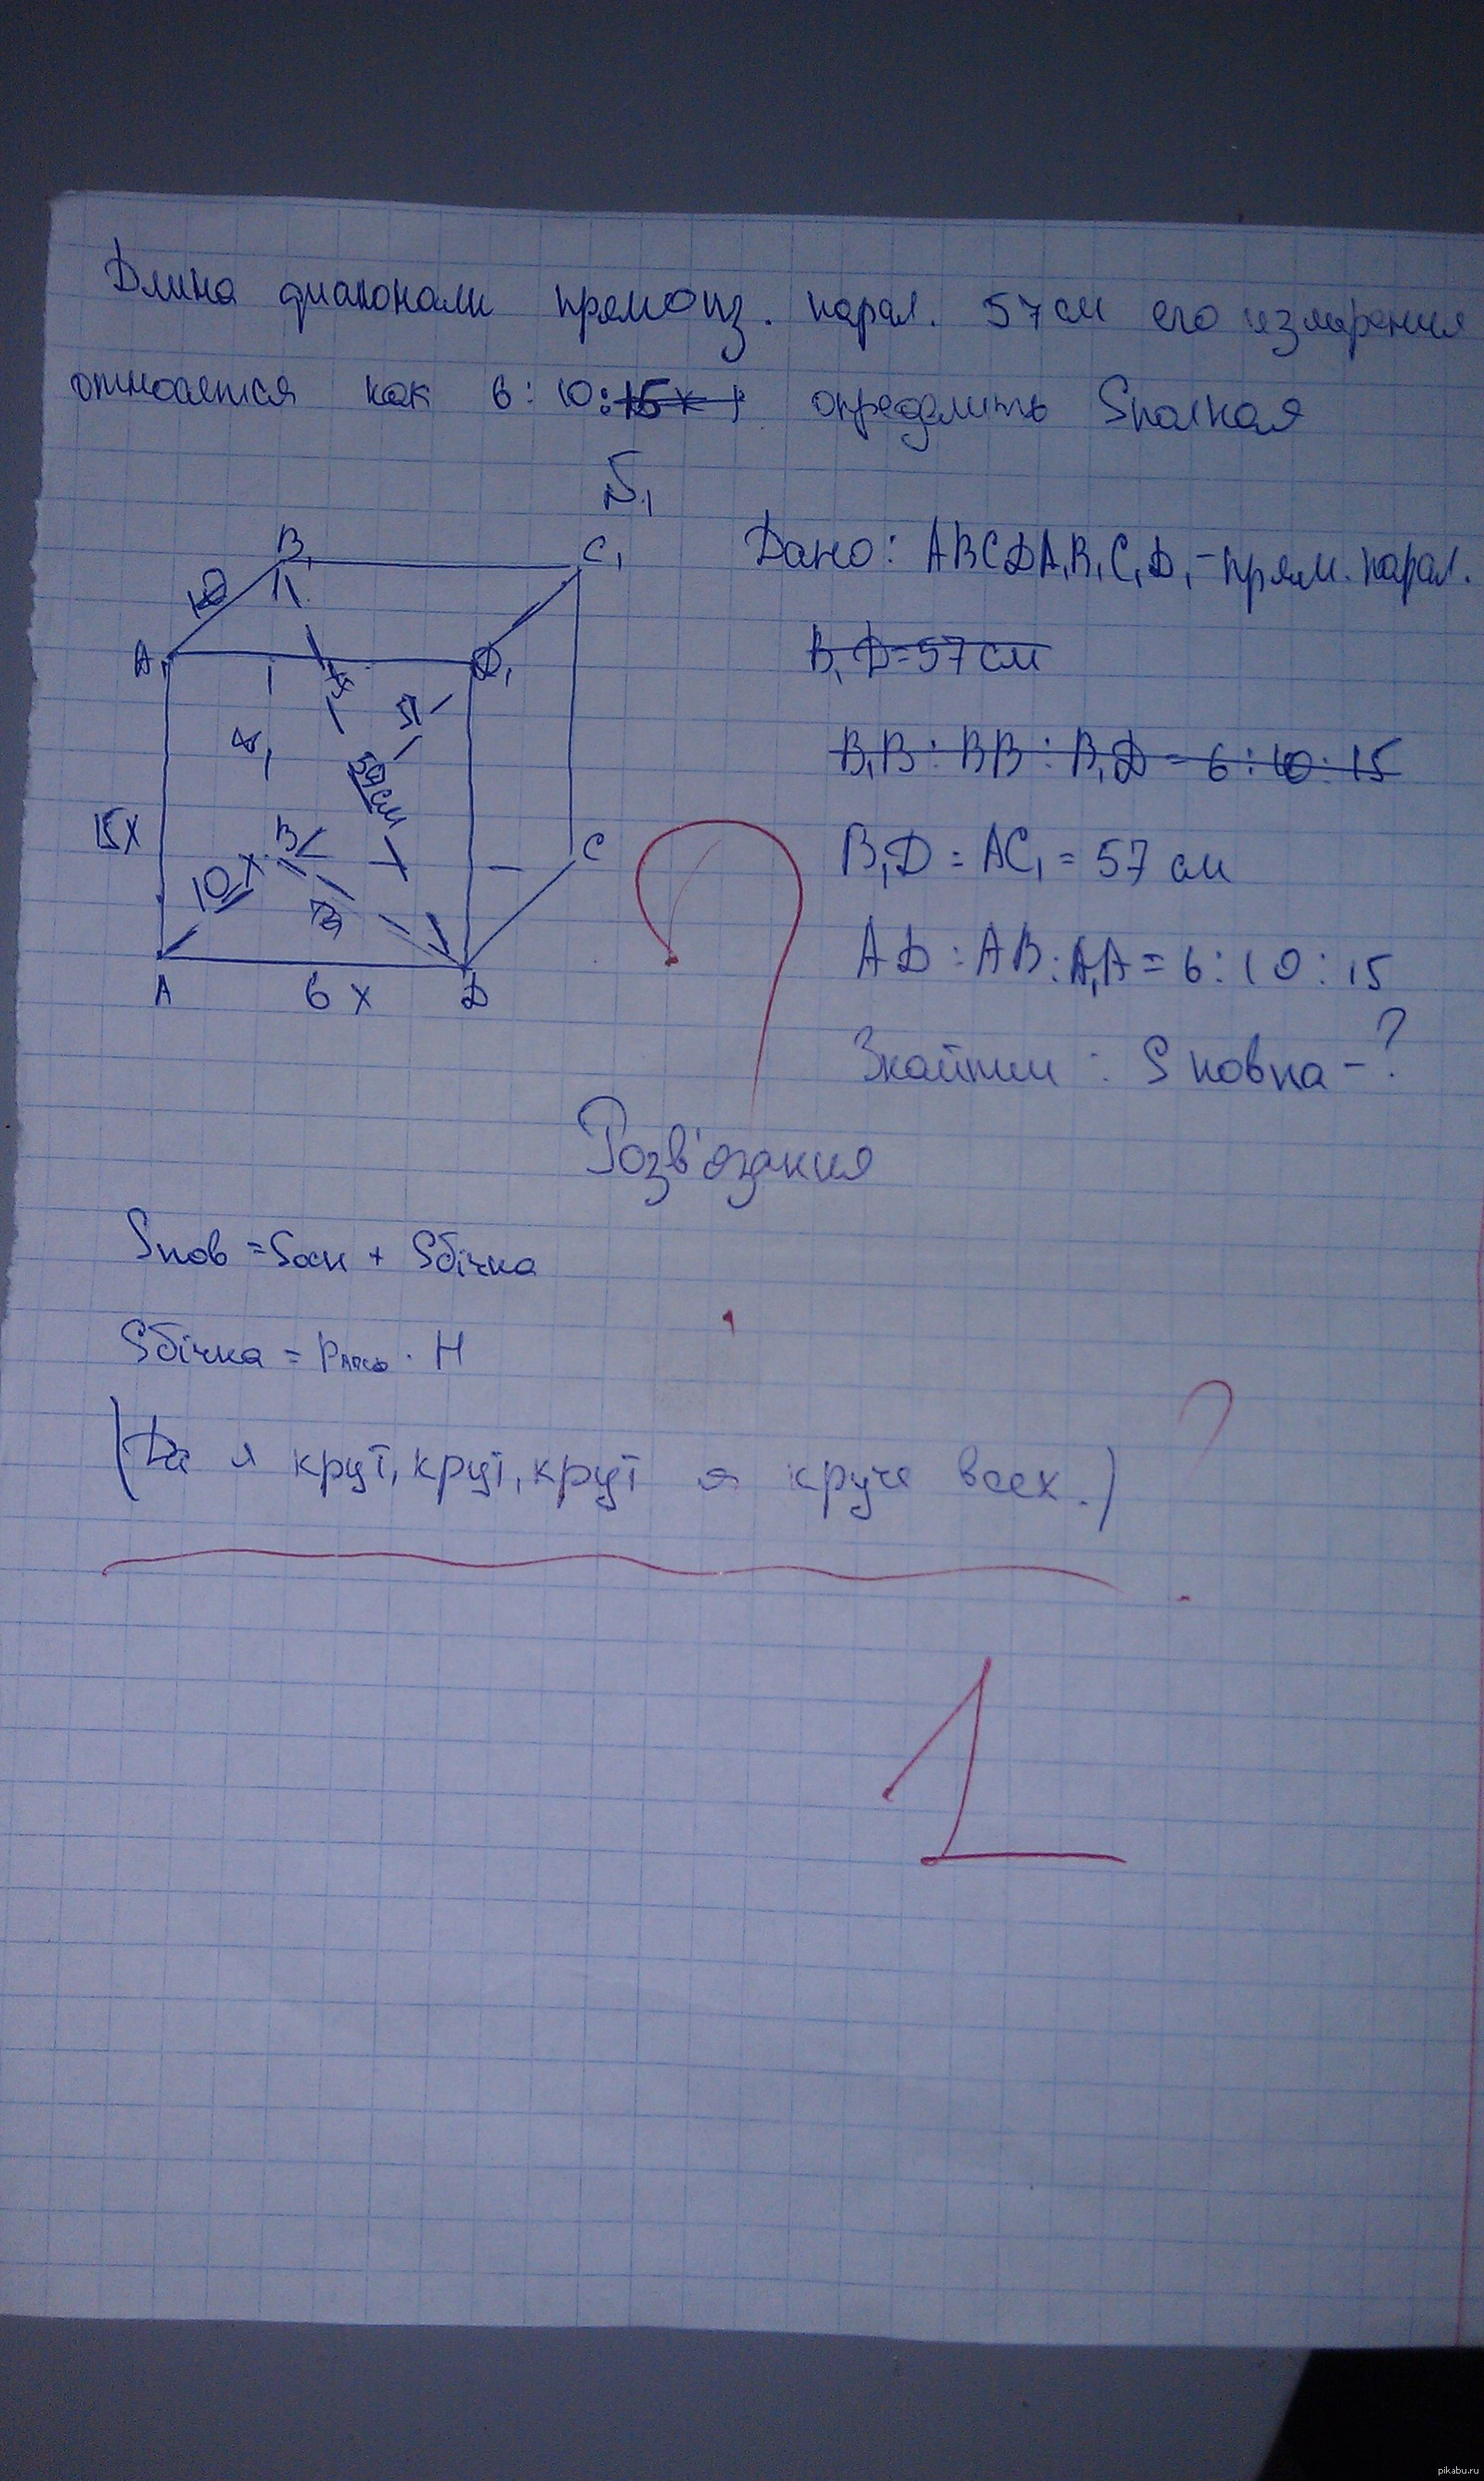 Длина диагонали прямоуг. парал. 57 см его измерения
относятся как 6 : 10 : 15x определить Sполная
B₁
C₁
10
A₁
D₁
57 см
15x
B
C
10x
A
6x
D
Дано: ABCDA₁B₁C₁D₁ - прям. парал.
B₁D = 57 см
B₁B : BB : B₁D = 6 : 10 : 15
B₁D = AC₁ = 57 см
AD : AB : A₁A = 6 : 10 : 15
Знайти : S повна - ?
?
Розв'язання
Sпов = Sосн + Sбічна
Sбічна = P · H
(Да я крут, крут, крут я круче всех.)
?
1
pikabu.ru